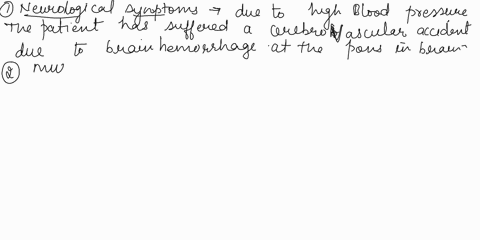 ① Neurological symptoms → due to high Blood pressure
The patient has suffered a cerebrovascular accident
due to brain hemorrhage at the pons in brain
②